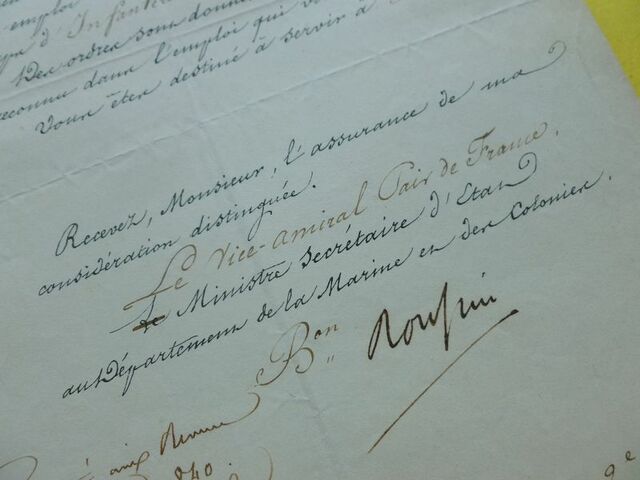 emploi
d'Infanterie
Des ordres sont donn
reconnu dans l'emploi qui v
Vous êtes destiné à servir à
Recevez, Monsieur, l'assurance de ma
considération distinguée.
Le Vice-amiral Pair de France,
Le Ministre Secrétaire d'Etat
au Département de la Marine et des Colonies.
Bon Roussin
aux Revues
840.
9e